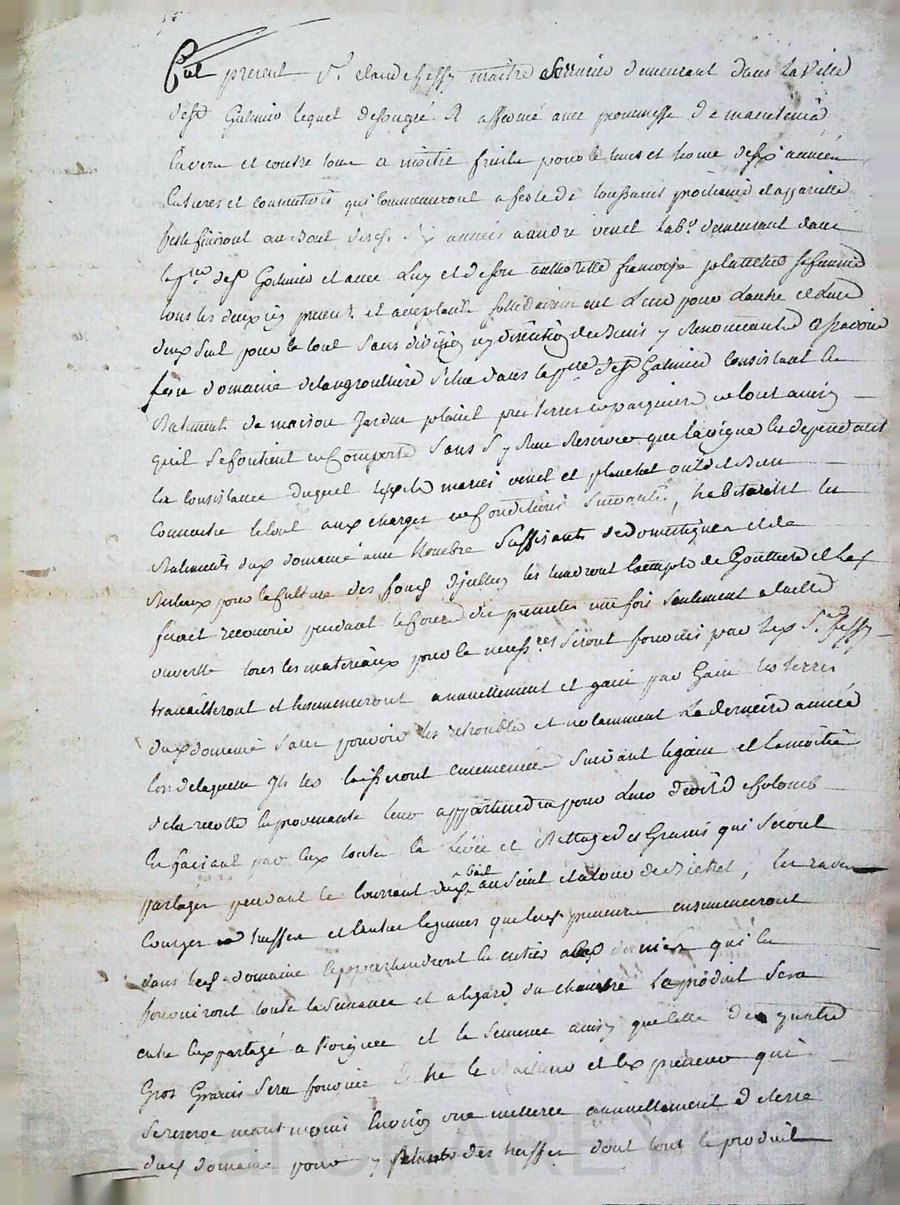 Fut present Sr. claude jeffy maitre serrurier demeurant dans la ville
de st Galmier lequel de son gré a affermé avec promesse de maintenir
envers et contre tous a moitié fruits pour le tems et terme de six années
Entieres et consecutives qui commenceront a feste de toussaint prochaine et a pareille
feste finiront au bout desd. six années a andré venet lab.r demeurant dans
la psse de st Galmier et avec luy et de son authorité françoise planchet sa femme
tous les deux icy presents et acceptants solidairement l'un pour l'autre et l'un
deux seul pour le tout sans division ny discution de biens y renonceants a scavoir
son domaine de situé dans la psse de st Galmier consistant en
Batiment de maison Jardin plassit pres terres et paquiere le tout ainsi
quil se contient et comporte sans s'y rien reserver que la vigne en dependant
la consistance duquel lesd. mariés venet et planchet ont dit bien
connoitre le tout aux charges et conditions suivantes, habiteront les
Batiments dud domaine avec nombre suffisants de domestiques et de
Bestiaux pour la culture des fonds d'jcelluy les tiendront a couvert de Gouttiere et les
feront recouvrir pendant le cours des presentes une fois seulement a taille
ouverte tous les materiaux pour ce necess.res seront fournis par led Sr. jeffy
travailleront et ensemenceront annuellement et gain par gain les terres
dud domaine sans pouvoir les retroubler et notamment la derniere année
lors de laquelle Ils les laisseront ensemencée suivant le gain et la moitié
de la recolte en provenante leur appartiendra pour leur droit de colons
En faisant par eux toutes la levée et Battage des Grains qui seront
partagés pendant le courrant dud. bail au seint et a la cour de Bichet, les raves
Courges truffes et autres legumes que lesd. preneurs ensemenceront
dans led. domaine appartiendront en entier a ces derniers qui en
fourniront toute la semance et a legard du chanvre le produit sera
entre eux partagé a Poignée et la semence ainsy que celle des quatre
Gros Grains sera fournie entre le Bailleur et les preneurs qui
se reserve neant moins led. une meterée annuellement de terre
dud domaine pour y planter des truffes dont tout le produit
Pascal CHAREYRON